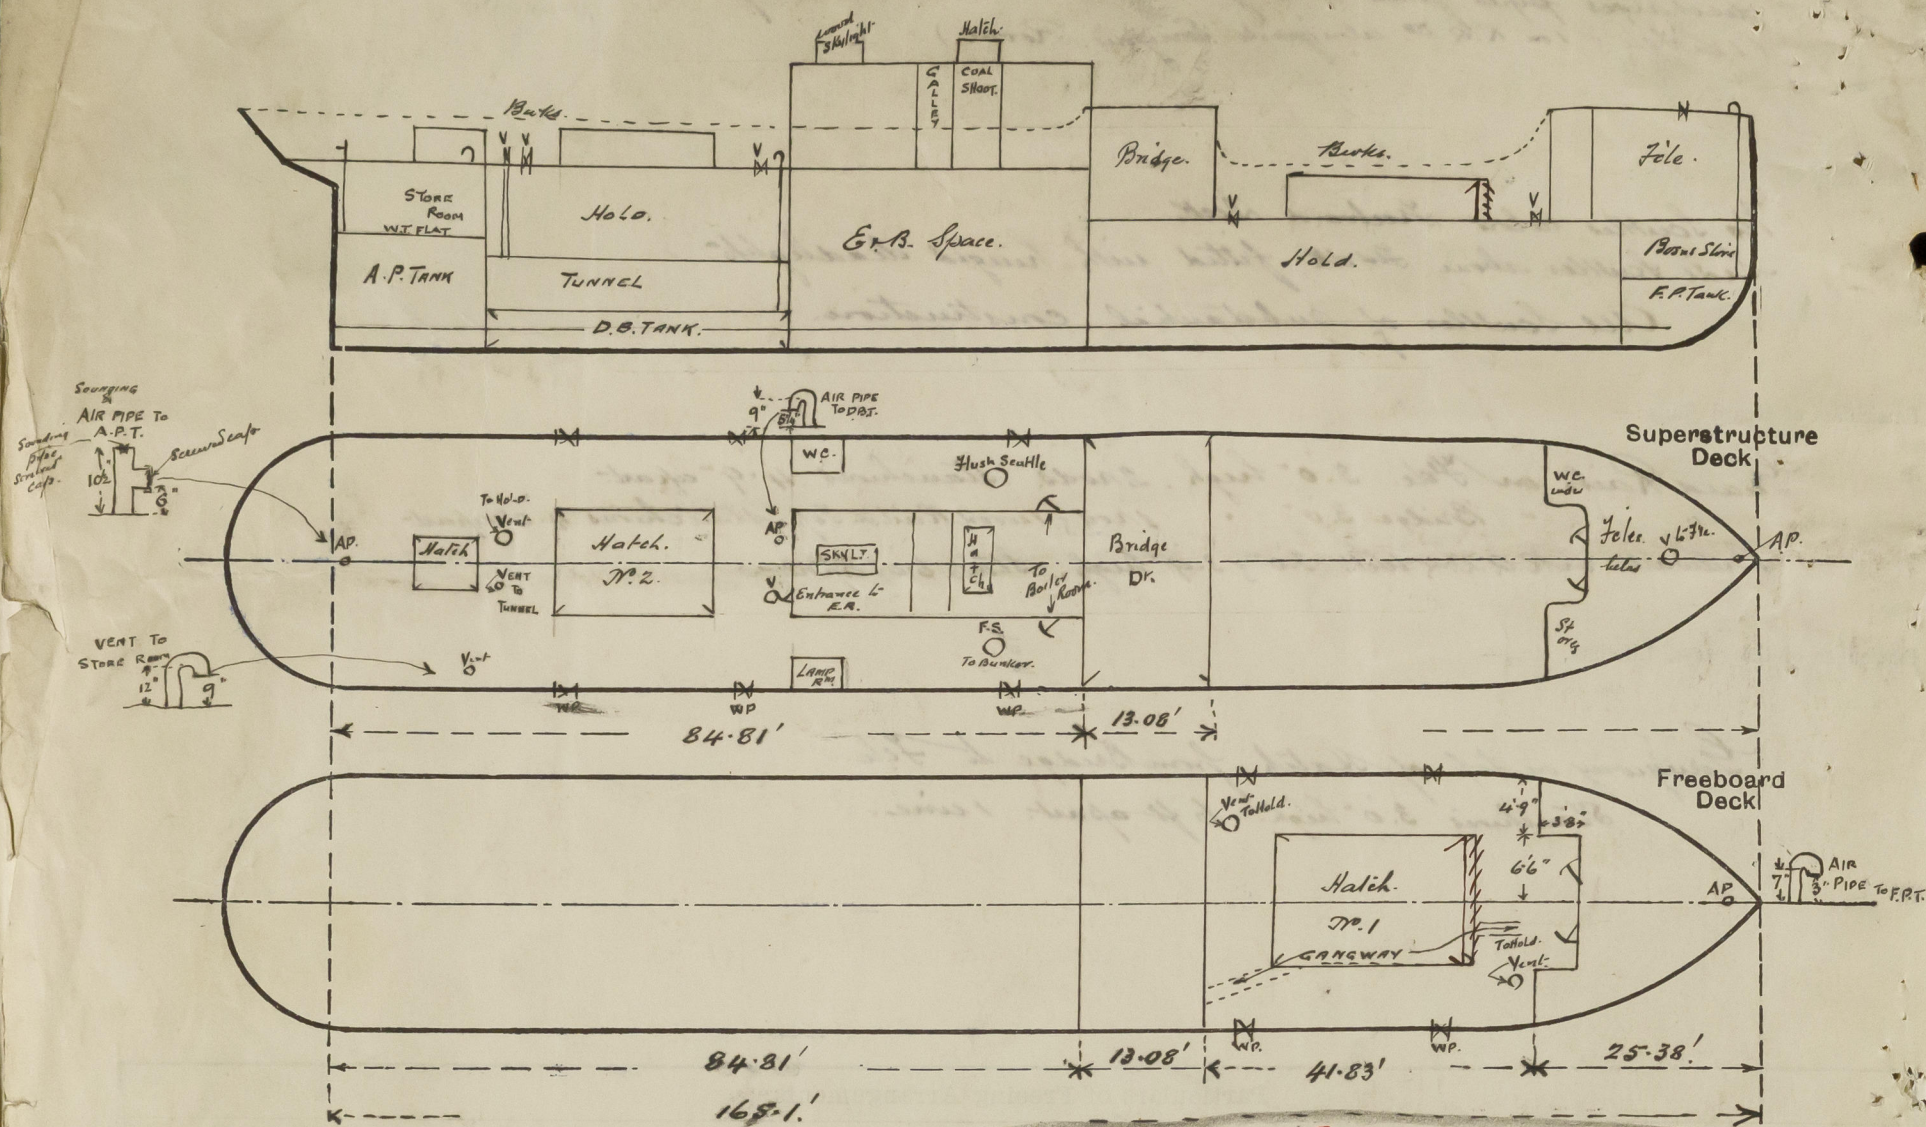 Wood
Skylight
Hatch.
GALLEY
COAL
SHOOT.
Bwks.
V
V
V
Bridge.
Bwks.
Fcle.
STORE
ROOM
W.T. FLAT
Hold.
V
V
E.&B. Space.
Hold.
Bosns Store
A.P. TANK
TUNNEL
F.P. Tank.
D.B. TANK.
SOUNDING
&
AIR PIPE TO
A.P.T.
Sounding
pipe
screwed
caps.
Screwed cap
10½"
6"
9"
AIR PIPE
TO D.B.T.
Superstructure
Deck
W.C.
Flush Scuttle
W.C.
To Hold.
Vent
AP.
Hatch
VENT
TO
TUNNEL
Hatch.
No. 2.
AP.
SKYLT.
Hatch
V
Entrance to
E.R.
To
Boiler
Room.
Bridge
Dk.
Fcle
V
to Fle.
AP.
F.S.
To Bunker.
Storg
VENT TO
STORE ROOM
12"
9"
Vent
LAMP
RM.
WP.
WP
WP.
84.81'
13.08'
Freeboard
Deck
Vent
To Hold.
4'9"
3'8"
6'6"
Hatch.
No. 1
GANGWAY
To Hold.
Vent.
AP
7"
3"
AIR
PIPE TO F.P.T.
WP.
WP.
84.81'
13.08'
41.83'
25.38'
165.1'